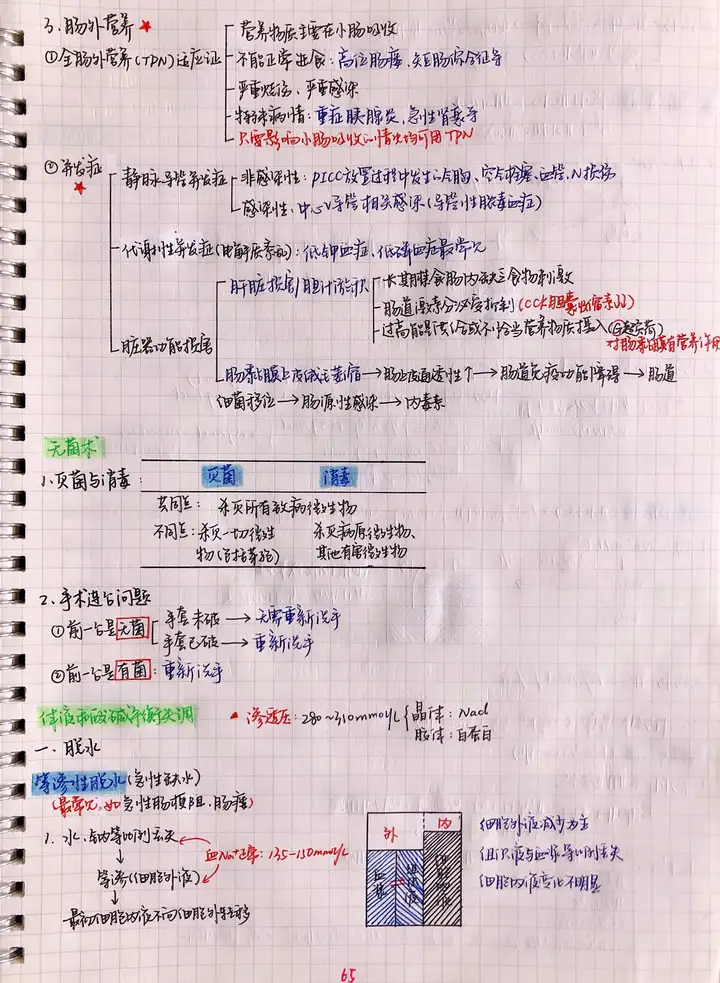 3.肠外营养 ★
营养物质主要在小肠吸收
①全肠外营养(TPN)适应证
不能正常进食:高位肠瘘、短肠综合征等
严重烧伤、严重感染
特殊病情:重症胰腺炎、急性肾衰等
只要影响小肠吸收的情况均可用TPN
②并发症 ★
静脉导管并发症
非感染性:PICC放置过程中发生的气胸、空气栓塞、血管、N损伤
感染性:中心V导管相关感染(导管性脓毒血症)
代谢性并发症(电解质紊乱):低钾血症、低磷血症最常见
脏器功能损害
肝脏损害/胆汁淤积
长期禁食肠内缺乏食物刺激
肠道激素分泌受抑制(CCK胆囊收缩素↓↓)
过高能量供给或不恰当营养物质摄入
对肠黏膜有营养作用
肠黏膜上皮绒毛萎缩→肠上皮通透性↑→肠道免疫功能障碍→肠道
细菌移位→肠源性感染→内毒素
无菌术
1.灭菌与消毒:
灭菌 消毒
共同点: 杀灭所有致病微生物
不同点: 杀灭一切微生 杀灭病原微生物、
物(包括芽孢) 其他有害微生物
2.手术连台问题
①前一台是无菌
手套未破→无需重新洗手
手套已破→重新洗手
②前一台是有菌:重新洗手
体液和酸碱平衡失调
渗透压:280~310mmol/L
晶体:Nacl
胶体:白蛋白
一.脱水
等渗性脱水(急性缺水)
(最常见,如急性肠梗阻、肠瘘)
1.水、钠等比例丢失
血Na+正常:135-150mmol/L
等渗(细胞外液)
最初细胞内液不向细胞外转移
外 内
血浆 组织液 细胞内液
细胞外液减少为主
组织液与血浆等比例丢失
细胞内液变化不明显
65